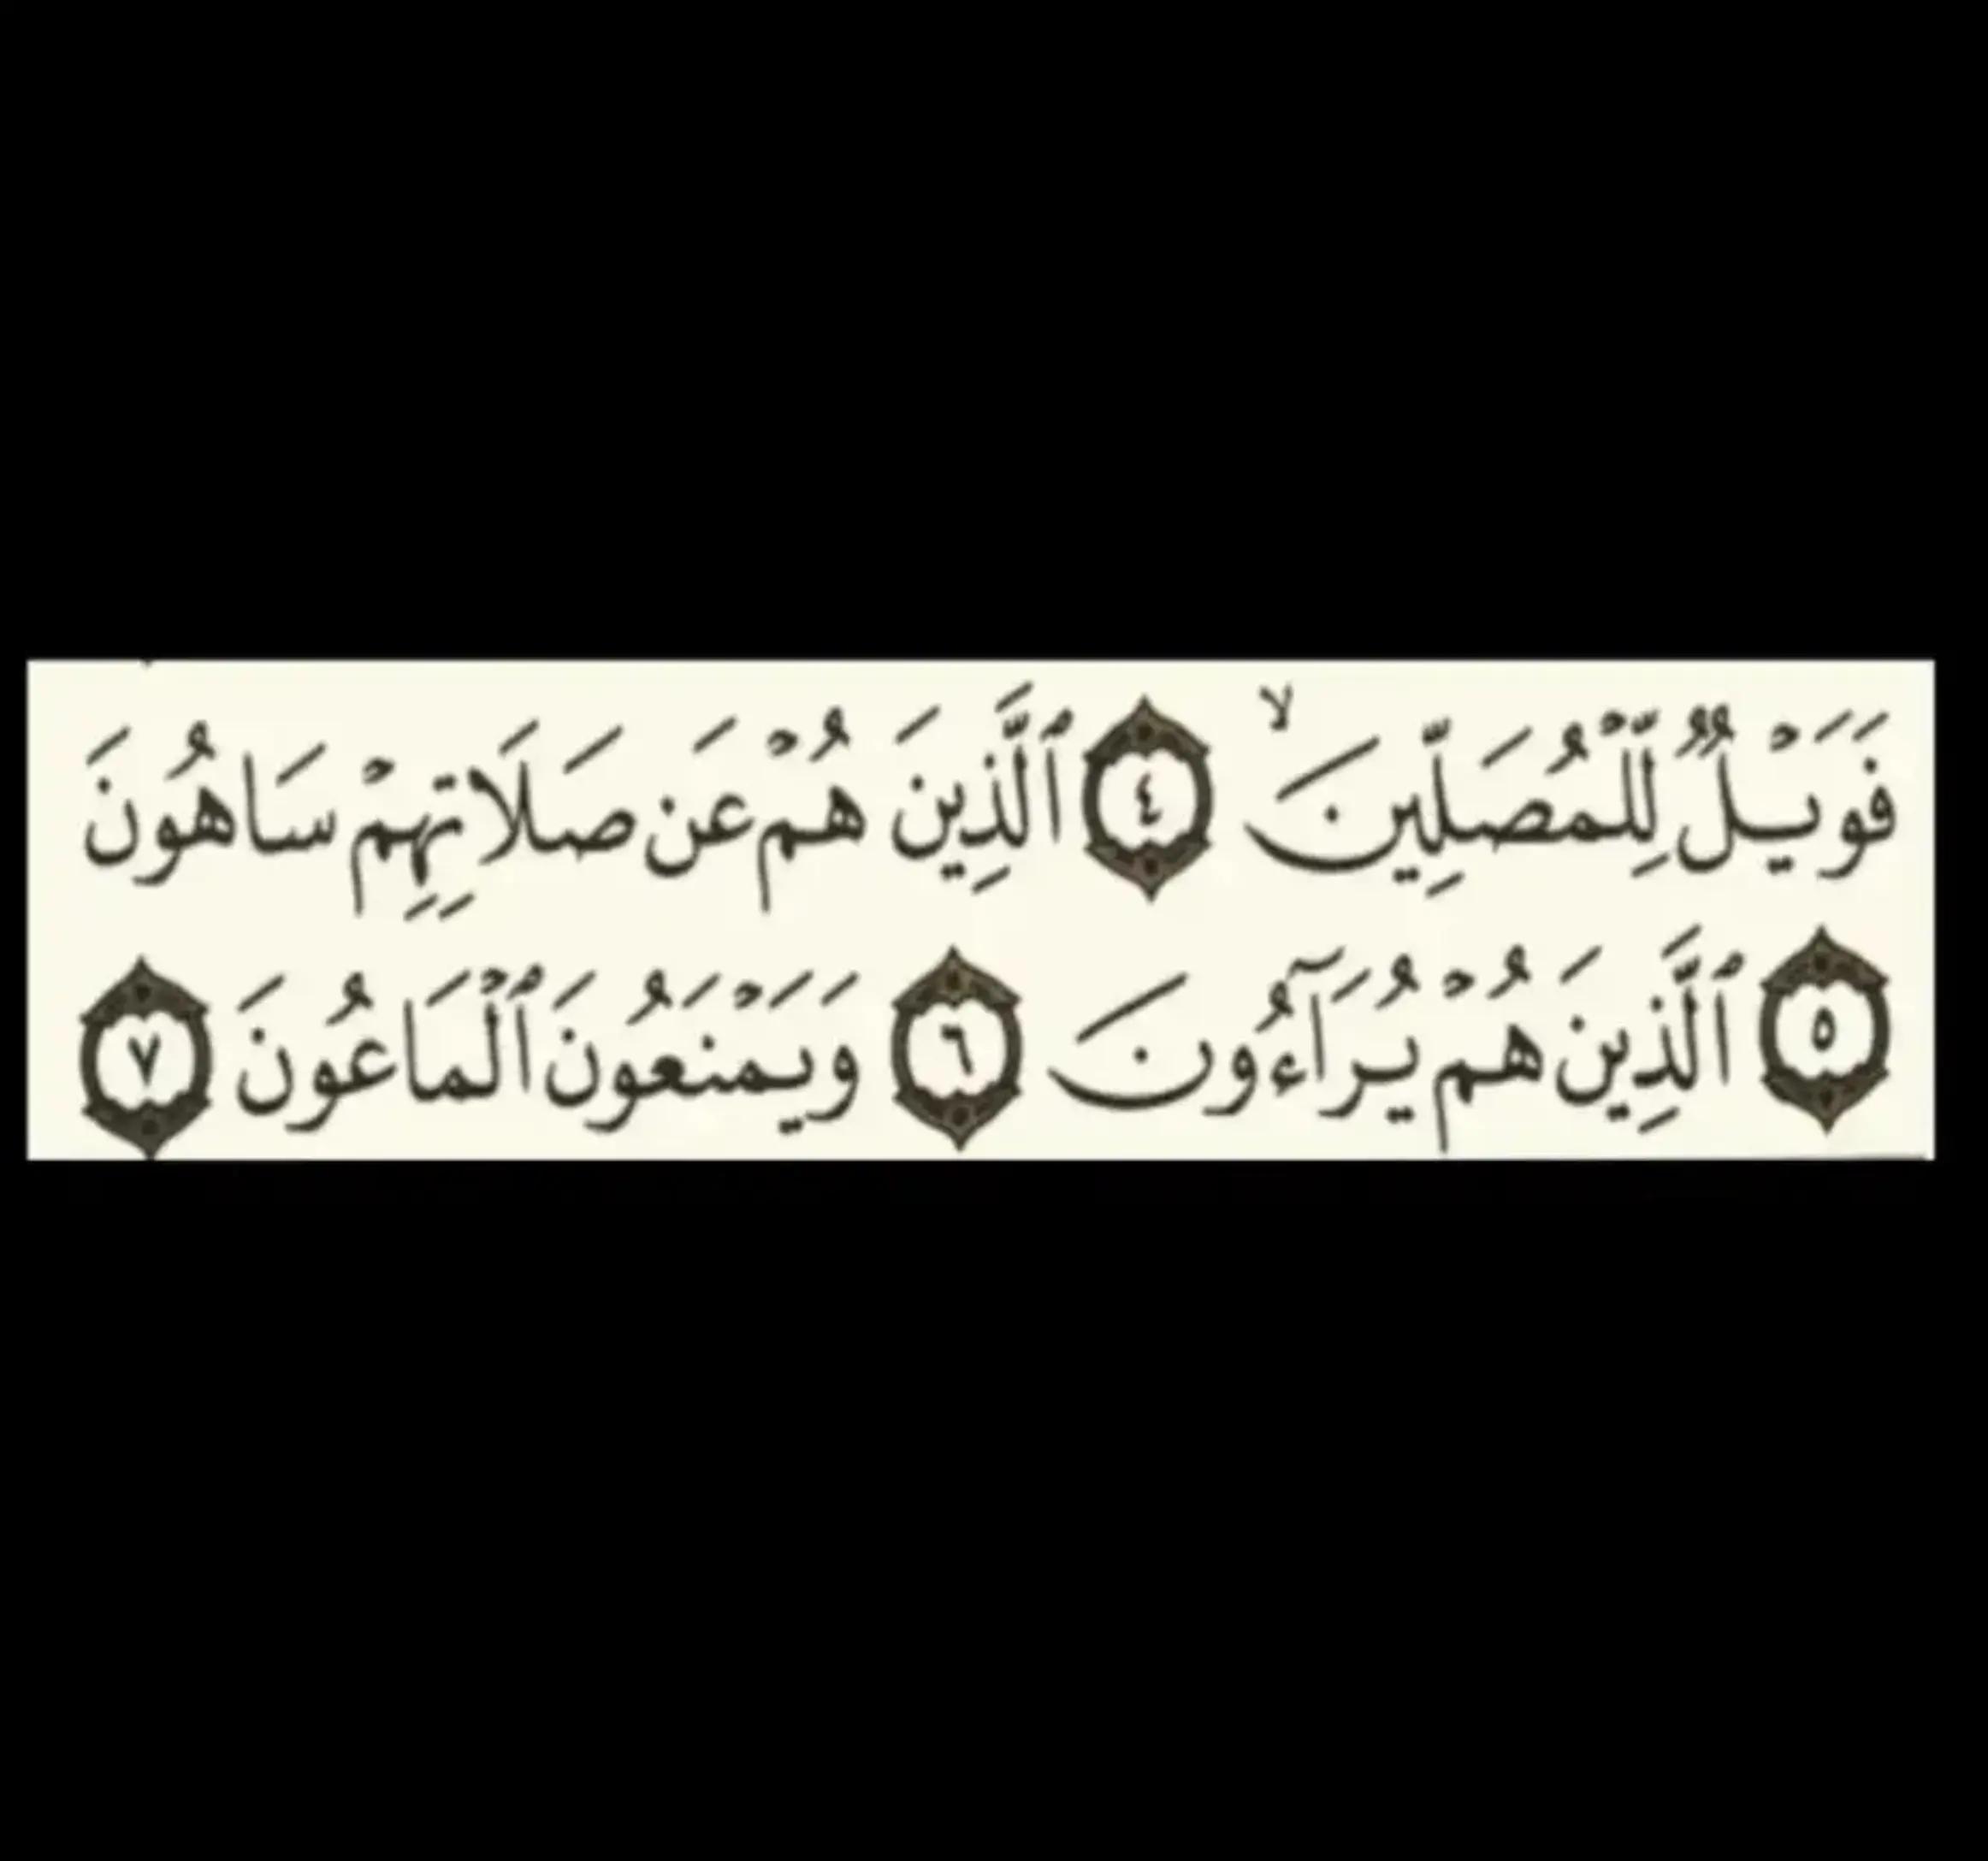 فَوَيْلٌ لِّلْمُصَلِّينَ ۙ ٤ ٱلَّذِينَ هُمْ عَن صَلَاتِهِمْ سَاهُونَ
٥ ٱلَّذِينَ هُمْ يُرَآءُونَ ٦ وَيَمْنَعُونَ ٱلْمَاعُونَ ٧